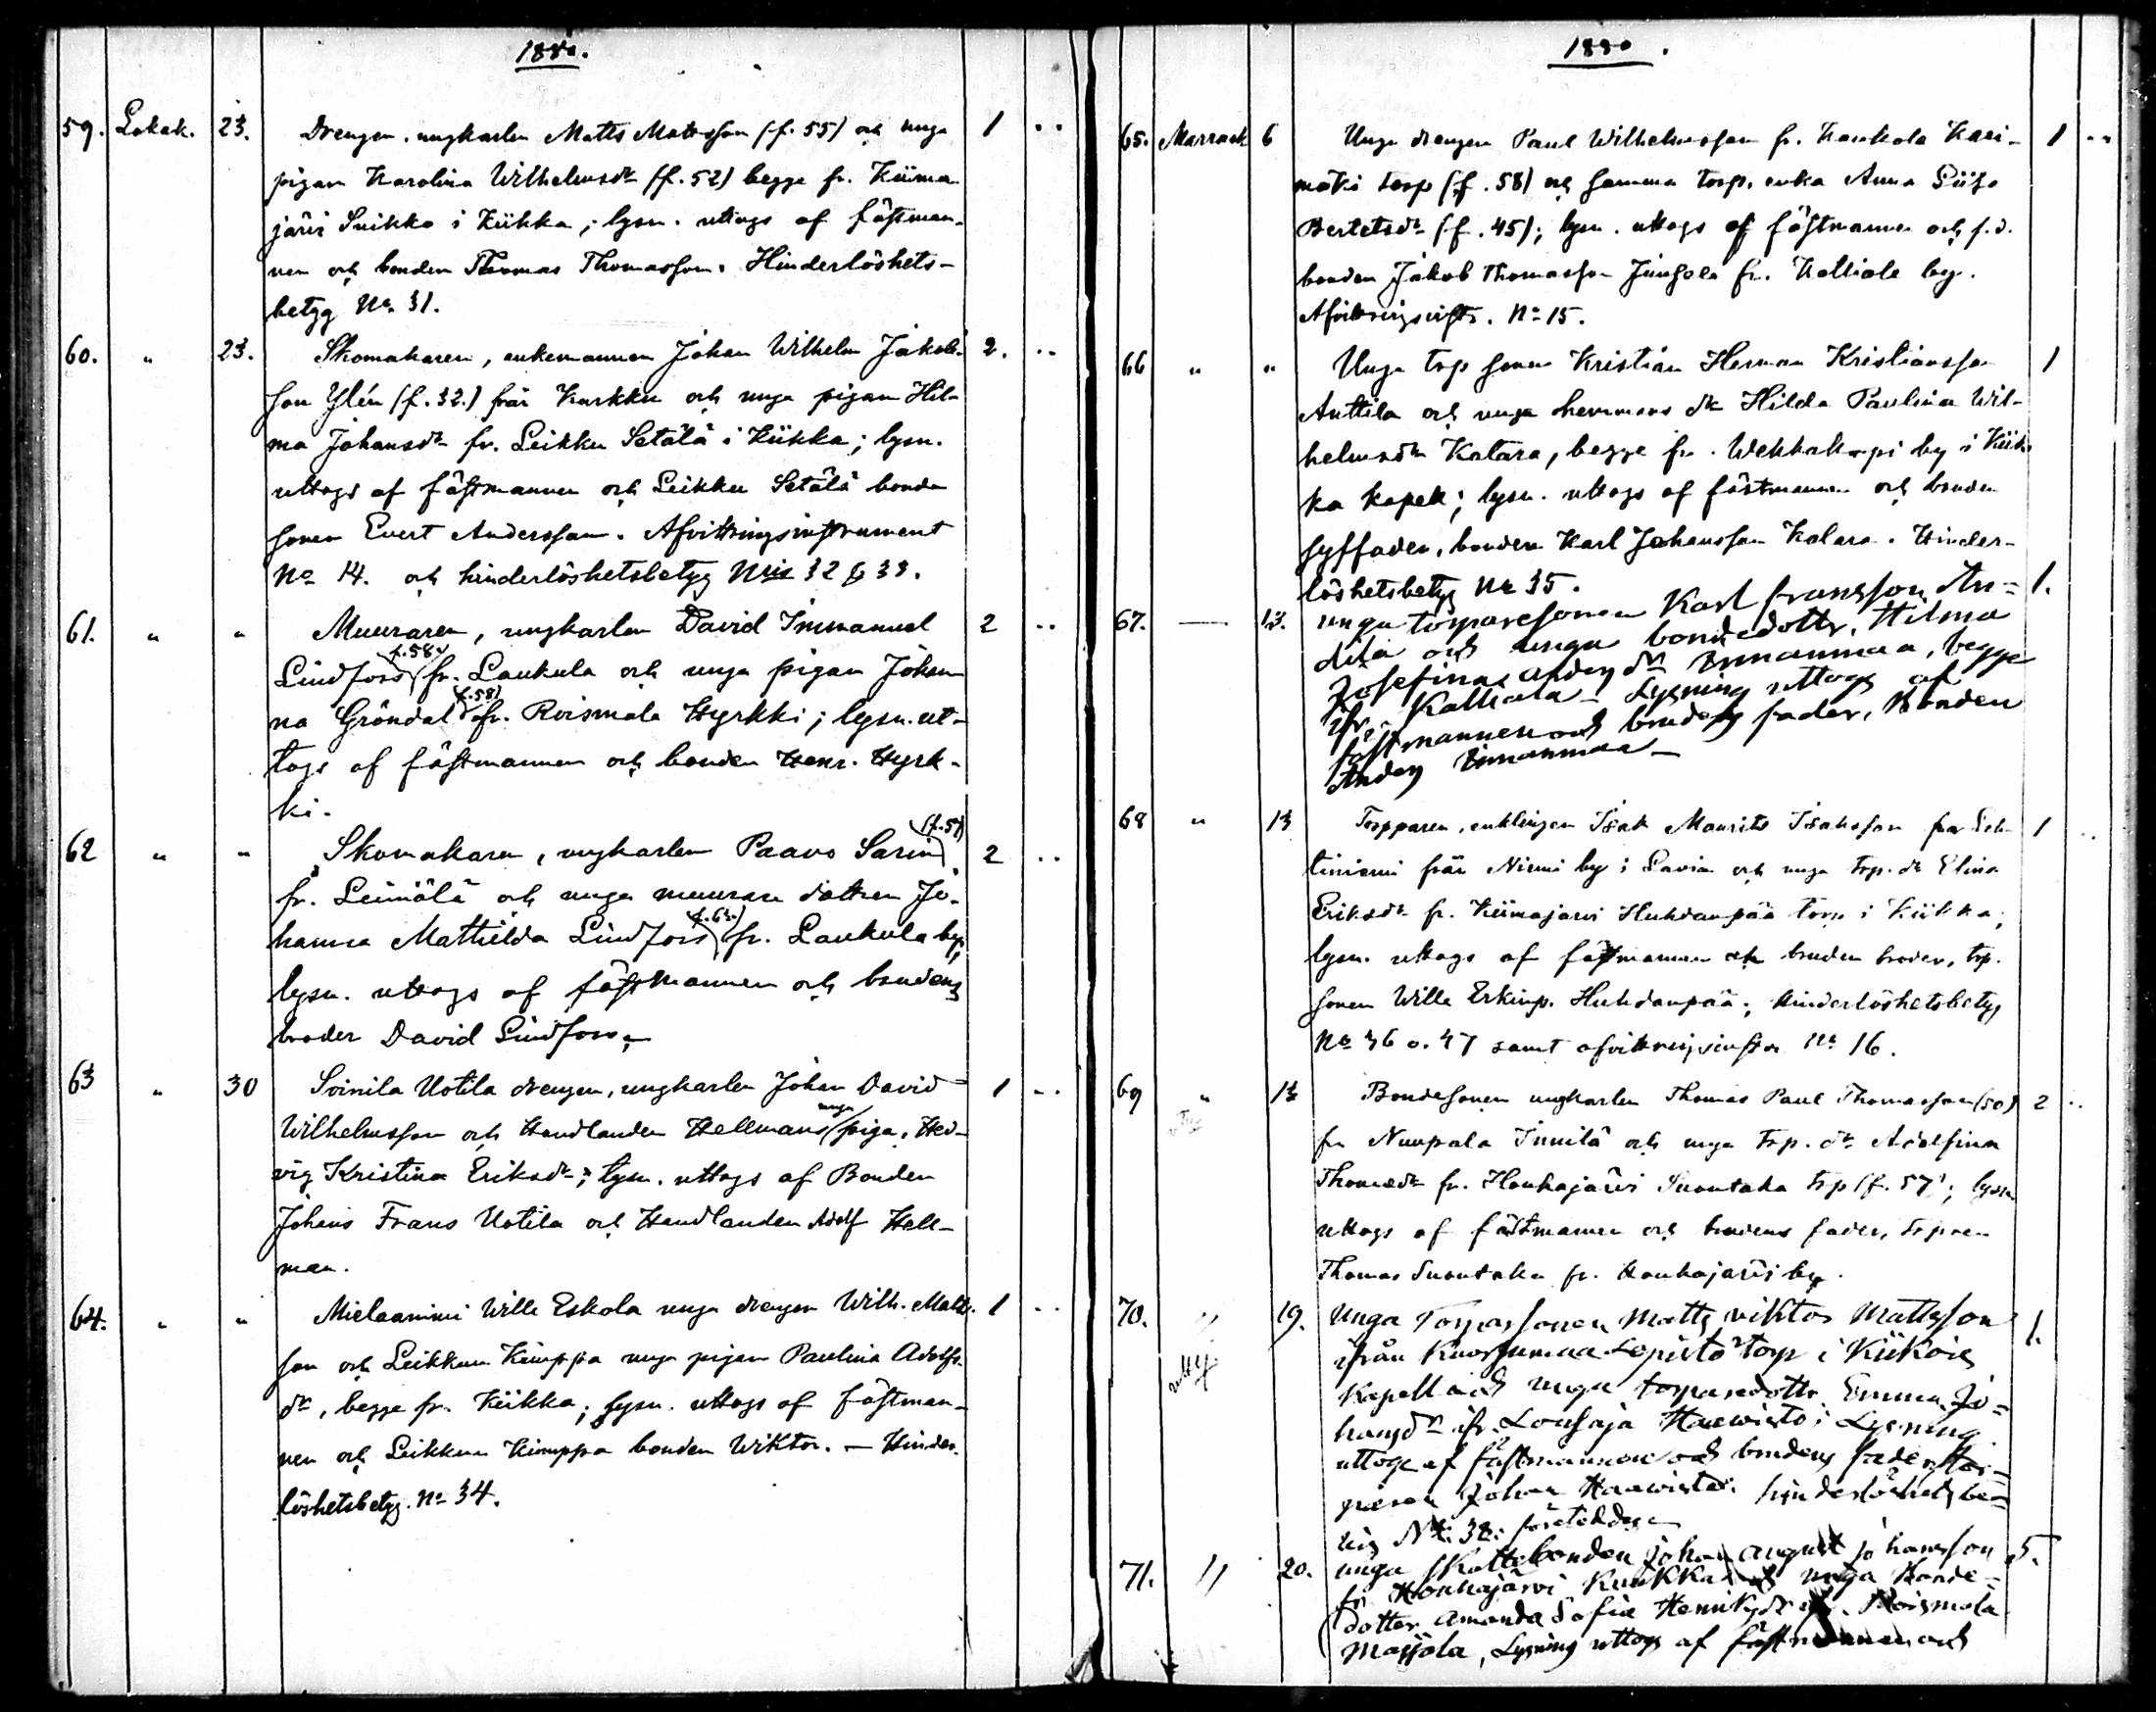 1880.
59. Lokak. 23. Drengen, ungkarlen Matts Mattsson (f. 55) och unga 1 ..
pigan Karolina Wilhelmsdr (f. 52) begge fr. Kiima
järvi Snikko i Kiikka; lysn. uttogs af fästman-
nen och bonden Thomas Thomasson. Hinderlöshets-
betyg No 31.
60. " 23. Skomakaren, enkemannen Johan Wilhelm Jakobs- 2. ..
son Ylén (f. 32.) från Karkku och unga pigan Hil-
ma Johansdr fr. Leikku Setälä i Kiikka; lysn.
uttogs af fästmannen och Leikku Setälä bonde
sonen Evert Andersson. Afvittringsinstrument
No 14. och hinderlöshetsbetyg Nris 32 & 33.
61. " " Muuraren, ungkarlen David Immanuel 2 ..
Lindfors (f. 58.) fr. Laukula och unga pigan Johan
na Gröndal (f. 58) fr. Roismala Hyrkki; lysn. ut-
togs af fästmannen och bonden Henr. Hyrk-
ki.
62 " " Skomakaren, ungkarlen Paavo Sarin (f. 57) 2 ..
fr. Leiniälä och unga muurare dottren Jo-
hanna Mathilda Lindfors (f. 63.) fr. Laukula by,
lysn. uttogs af fästmannen och brudens
broder David Lindfors.
63 " 30 Soinila Uotila drengen, ungkarlen Johan David 1 ..
Wilhelmsson och Handlanden Hellmans unga piga, Hed-
vig Kristina Eriksdr; lysn. uttogs af Bonden
Johans Frans Uotila och Handlanden Adolf Hell-
man.
64. " " Mielaanimi Wille Eskola unga drengen Wilh. Matts- 1 ..
son och Leikkun Kimppa unga pigan Paulina Adolfs-
dr, begge fr. Kiikka; lysn. uttogs af fästman-
nen och Leikkun Kimppa bonden Wiktor. — Hinder-
löshetsbetyg. No 34.
1880.
65. Marrask 6 Unga drengen Paul Wilhelmsson fr. Kaukola Kari- 1 ..
mäki torp (f. 58) och samma torp. enka Anna Liisa
Bertetsdr (f. 45); lysn. uttogs af fästmannen och f.d.
bonden Jakob Thomasson fr. Kalliala by.
No 15.
66 " " Unga torp sonen Kristian Herman Kristiansson 1
Anttila och unga hemmans dr Hilda Paulina Wil-
helmsdr Katara, begge fr. by i Kiik-
ka kapell; lysn. uttogs af fästmannen och bruden
bonden Karl Johansson Katara. Hinder-
löshetsbetyg No 35.
67. — 13. unga torparesonen Karl Fransson An= 1.
dila och unga bondedottr. Hilma
Josefina Andersdr begge
ifr. Kalliala — Lysning uttogs af
fästmannen och brudens fader, Bonden
Anders
68 " 13 Torpparen, enklingen Isak Maurits Isaksson fr. 1 ..
från Niemi by i Lavia och unga torp. dr Elina
Eriksdr fr. Kiimajärvi Huhdanpää torp i Kiikka;
lysn. uttogs af fästmannen och bruden broder, torp.
sonen Wille Huhdanpää; Hinderlöshetsbetyg
No 36 o. 37 samt No 16.
69 " 13 Bondesonen ungkarlen Thomas Paul Thomasson (50) 2 ..
fr. Nuupala Innilä och unga torp. dr Adolfina
Thomasdr fr. Houhajärvi Suontaka torp (f. 57); lysn.
uttogs af fästmannen och brudens fader,
Thomas Suontaka fr. Houhajärvi by.
70. " 19. Unga Torparsonen Matts Viktor Mattsson 1.
ifrån torp i Kiikois
Kapell och unga torparedottr. Emma Jo=
hansdr ifr. Lousaja Haavisto; Lysning
uttogs af fästmannen och brudens fader, Tor=
paren Johan Haavisto. hinderlöshetsbe=
No: 38:
71. " 20. unga Skattebonden Johan August Johansson 5.
fr. Houhajärvi Kuukka och unga Bonde=
dotter Amanda Sofia Henriksdr Roismala
Marjola, Lysning uttogs af fästmannen och